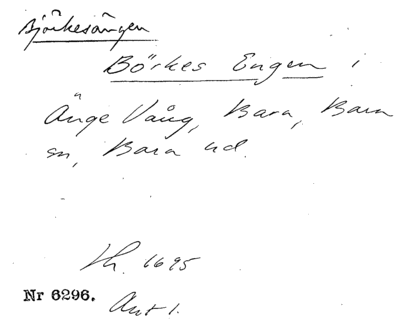 Björkesängen
Börkes Engen i
Änge Vång, Bara, Bara
sn, Bara hd.
Lh. 1695
Nr 6296.
Akt 1.